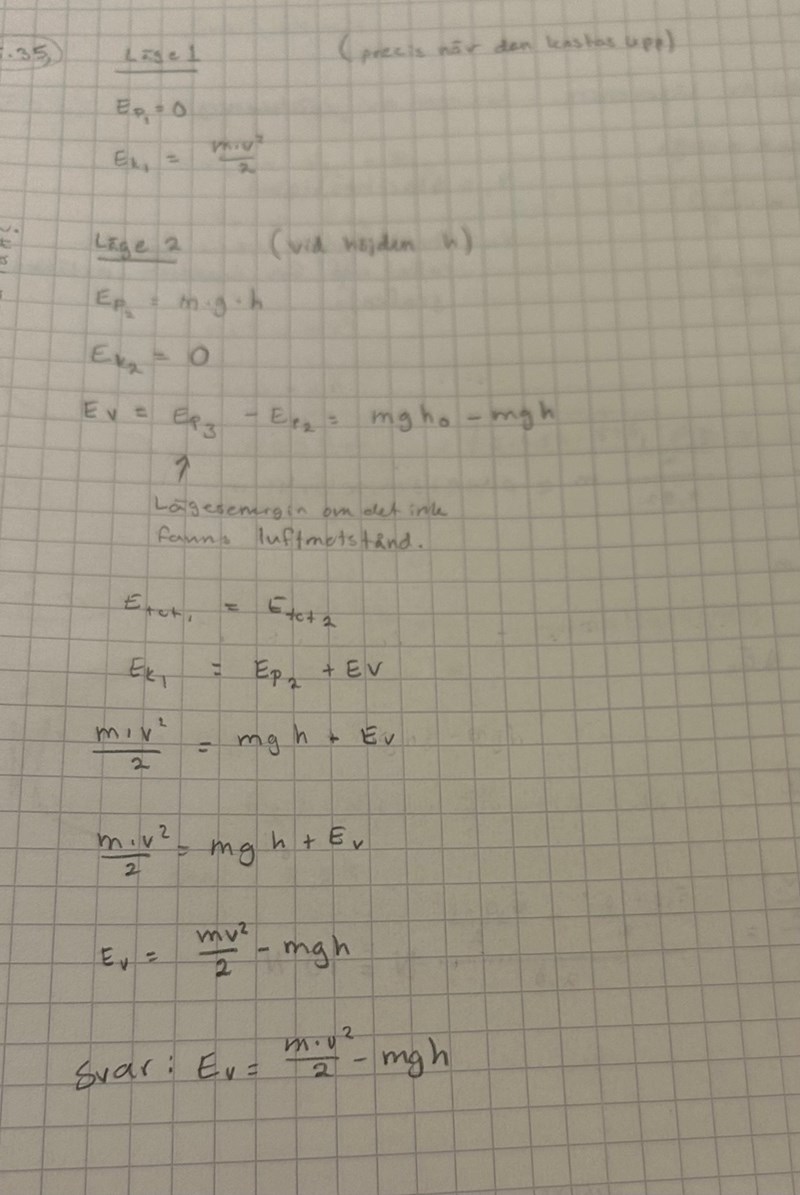 .35) Läge 1 (precis när den kastas upp)
Ep₁ = 0
Ek₁ = m·v²/2
Läge 2 (vid höjden h)
Ep₂ = m·g·h
Ek₂ = 0
Ev = Ep₃ - Ep₂ = mgh₀ - mgh
↑
Lägesenergin om det inte
fanns luftmotstånd.
Etot₁ = Etot₂
Ek₁ = Ep₂ + Ev
m·v²/2 = mgh + Ev
m·v²/2 = mgh + Ev
Ev = mv²/2 - mgh
Svar: Ev = m·v²/2 - mgh